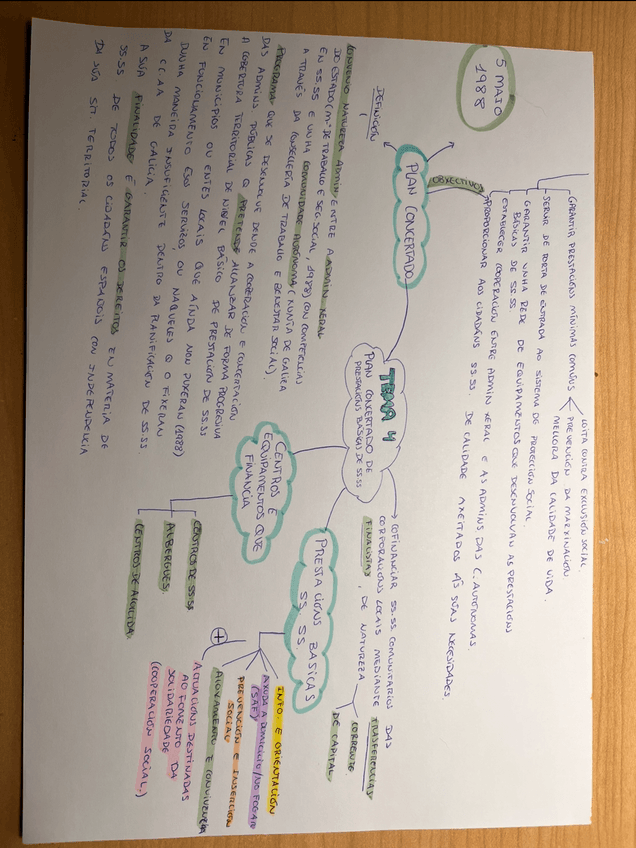 5 MAIO
1988
TEMA 4
PLAN CONCERTADO DE
PRESTACIÓNS BÁSICAS DE SS.SS
PLAN CONCERTADO
OBXECTIVOS
GARANTIR PRESTACIÓNS MÍNIMAS COMÚNS
LOITA CONTRA EXCLUSIÓN SOCIAL
PREVENCIÓN DA MARXINACIÓN
MELLORA DA CALIDADE DE VIDA.
SERVIR DE PORTA DE ENTRADA AO SISTEMA DE PROTECCIÓN SOCIAL.
GARANTIR UNHA REDE DE EQUIPAMENTOS QUE DESENVOLVAN AS PRESTACIÓNS
BÁSICAS DE SS.SS
ESTABLECER COOPERACIÓN ENTRE ADMIN XERAL E AS ADMINS DAS C. AUTÓNOMAS.
PROPORCIONAR AOS CIDADÁNS SS.SS. DE CALIDADE AXEITADOS ÁS SÚAS NECESIDADES.
DEFINICIÓN
CONVENIO NATUREZA ADMIN. ENTRE A ADMIN. XERAL
DO ESTADO (Mº DE TRABALLO E SEG. SOCIAL, 1988) CON COMPETENCIAS
EN SS.SS E UNHA COMUNIDADE AUTÓNOMA (XUNTA DE GALICIA
A TRAVÉS DA CONSELLERÍA DE TRABALLO E BENESTAR SOCIAL).
PROGRAMA QUE SE DESENVOLVE DENDE A COOPERACIÓN E CONCERTACIÓN
DAS ADMINS PÚBLICAS Q PRETENDE ALCANZAR DE FORMA PROGRESIVA
A COBERTURA TERRITORIAL DE NIVEL BÁSICO DE PRESTACIÓN DE SS.SS
EN MUNICIPIOS OU ENTES LOCAIS QUE AÍNDA NON PUXERAN (1988)
EN FUNCIONAMENTO ESOS SERVIZOS OU NAQUELES Q O FIXERAN
DUNHA MANEIRA INSUFICIENTE DENTRO DA PLANIFICACIÓN DE SS.SS
DA CCAA DE GALICIA.
A SÚA FINALIDADE É GARANTIR OS DEREITOS EN MATERIA DE
SS.SS DE TODOS OS CIDADÁNS ESPAÑOIS CON INDEPENDENCIA
DA SÚA SIT. TERRITORIAL.
COFINANCIAR SS.SS COMUNITARIOS DAS
CORPORACIÓNS LOCAIS MEDIANTE TRASFERENCIAS
FINALISTAS, DE NATUREZA
CORRENTE
DE CAPITAL
CENTROS E
EQUIPAMENTOS QUE
FINANCIA
CENTROS DE SS.SS
ALBERGUES
CENTROS DE ACOLLIDA
PRESTACIÓNS BÁSICAS
SS.SS.
INFO. E ORIENTACIÓN
AXUDA A DOMICILIO/NO FOGAR
(SAF)
PREVENCIÓN E INSERCIÓN
SOCIAL
ALOXAMENTO E CONVIVENCIA
+
ACTUACIÓNS DESTINADAS
AO FOMENTO DA
SOLIDARIEDADE
(COOPERACIÓN SOCIAL)